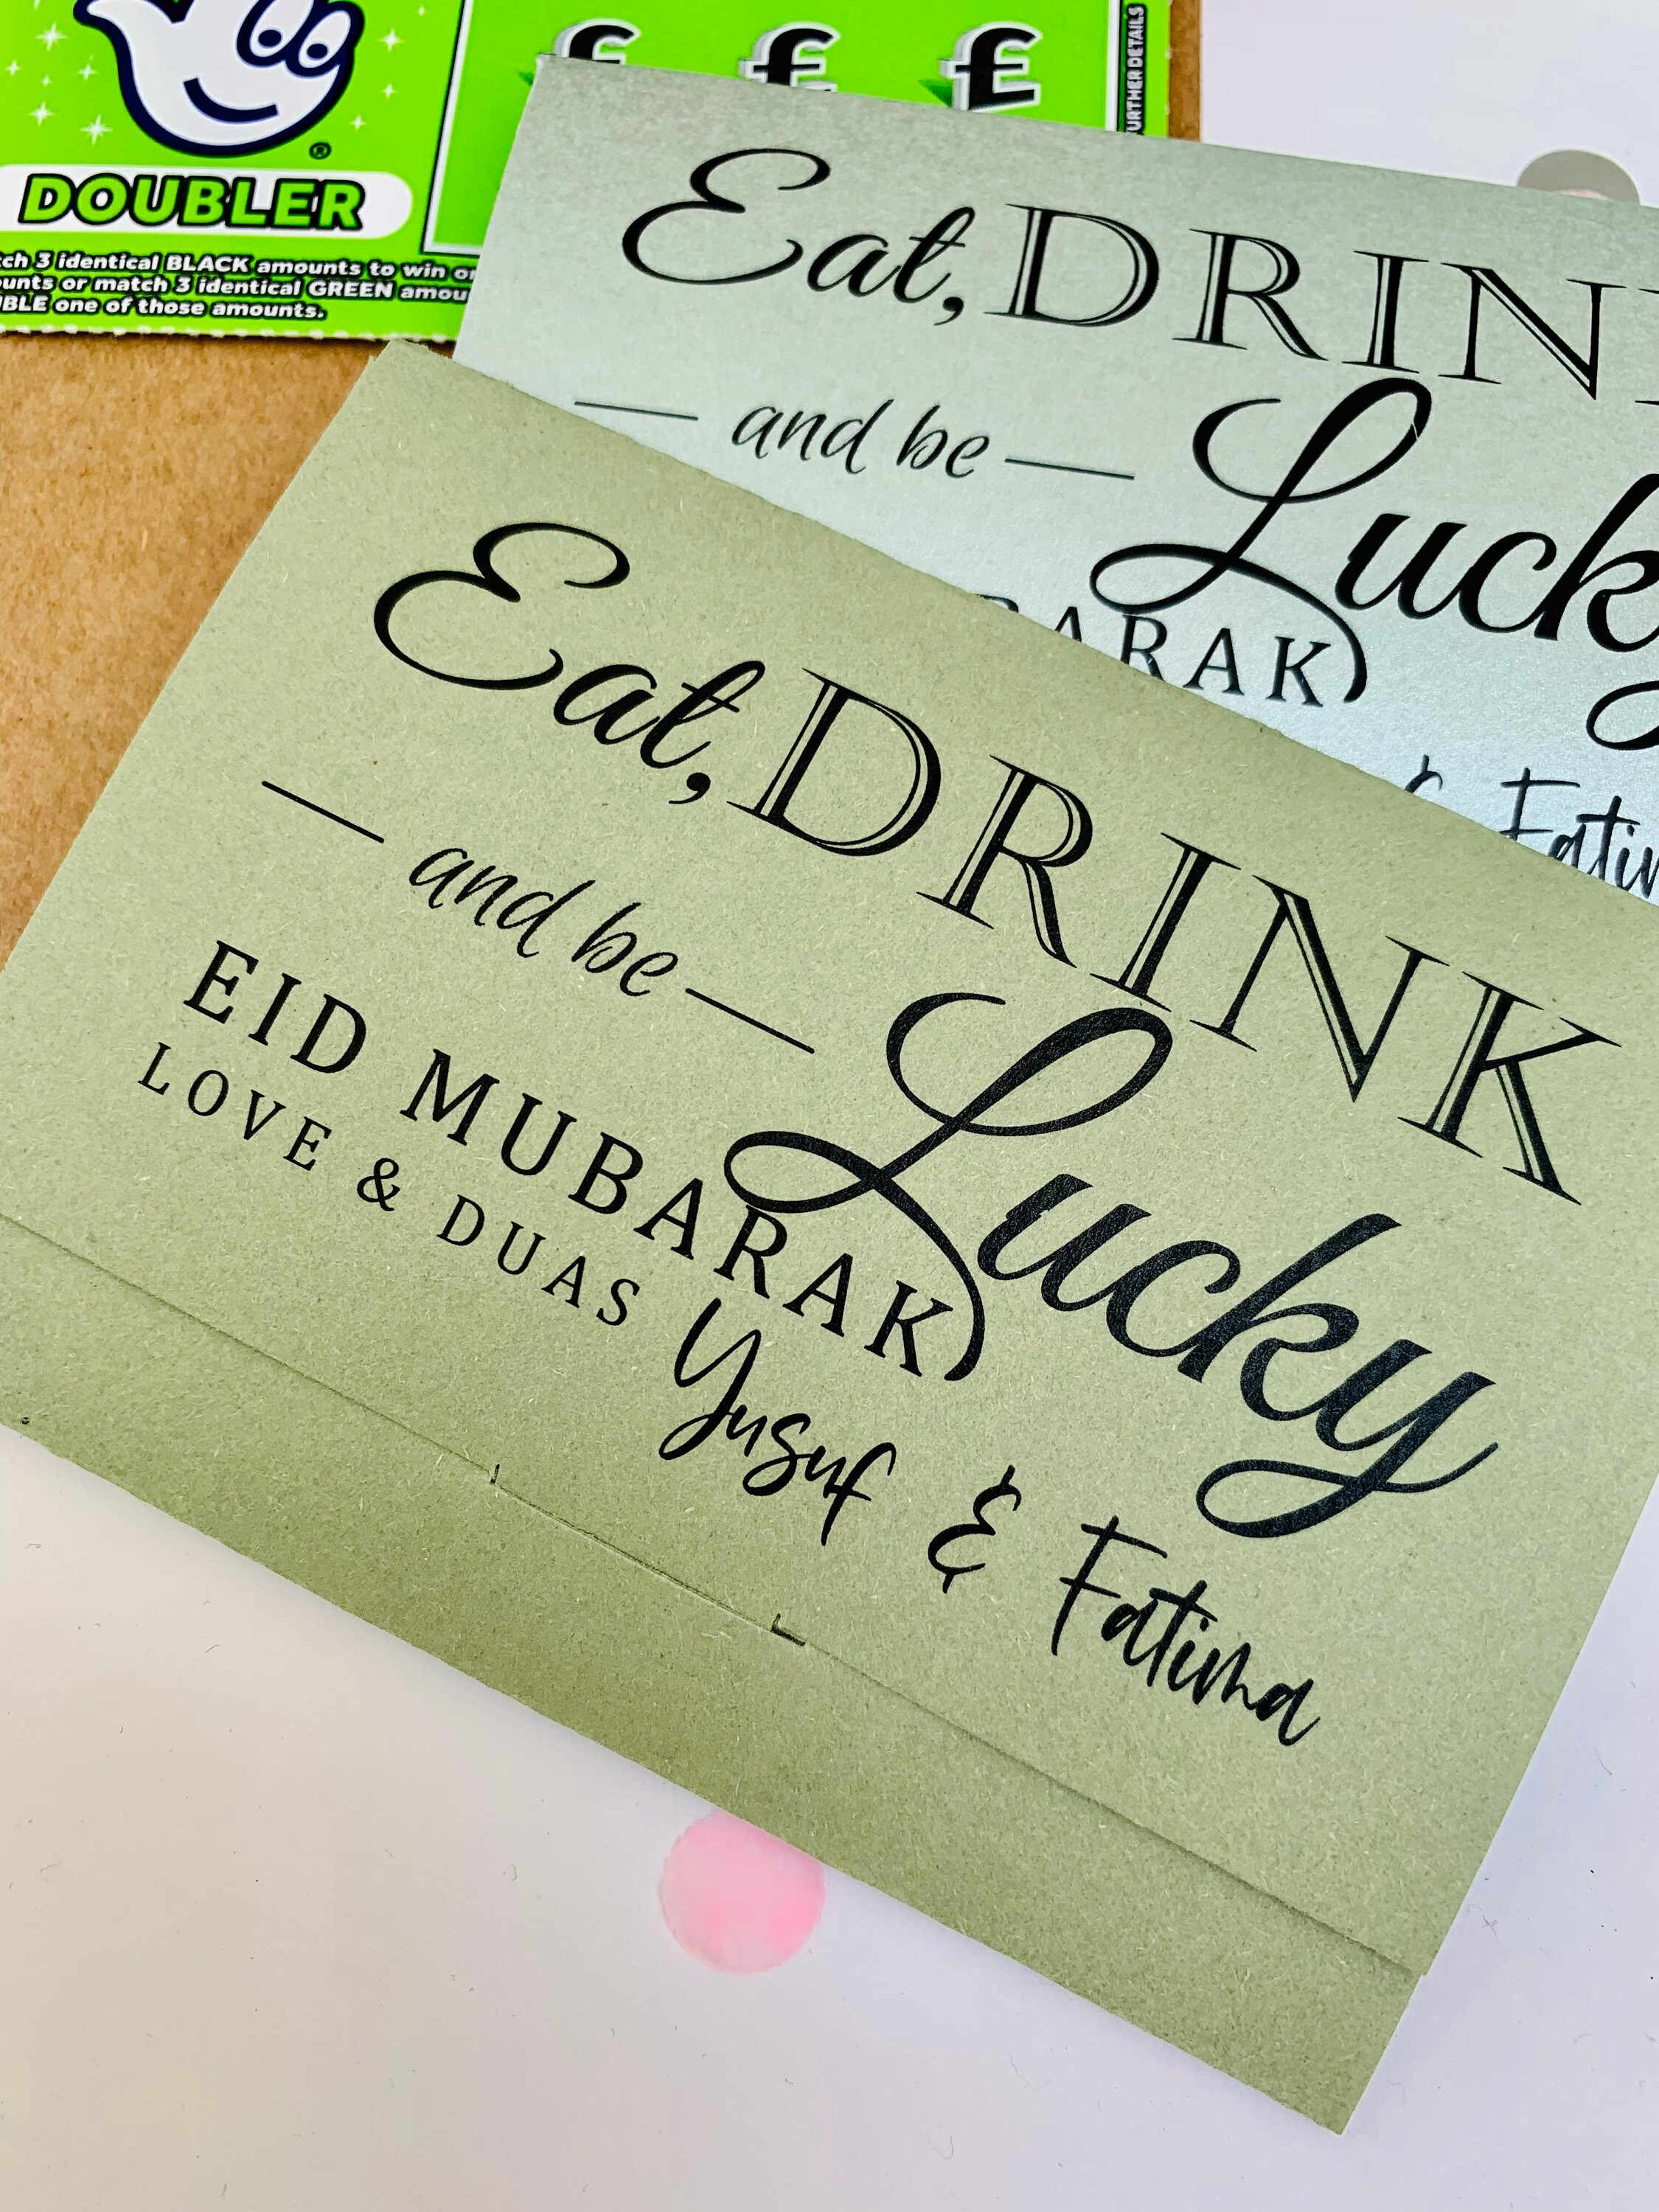 ®
DOUBLER
3 identical BLACK amounts to win
or match 3 identical GREEN
one of those amounts.
£ £ £
FURTHER DETAILS
Eat,
and be
Lucky
&
Eat, DRINK
and be
Lucky
EID MUBARAK
LOVE & DUAS
Yusuf & Fatima